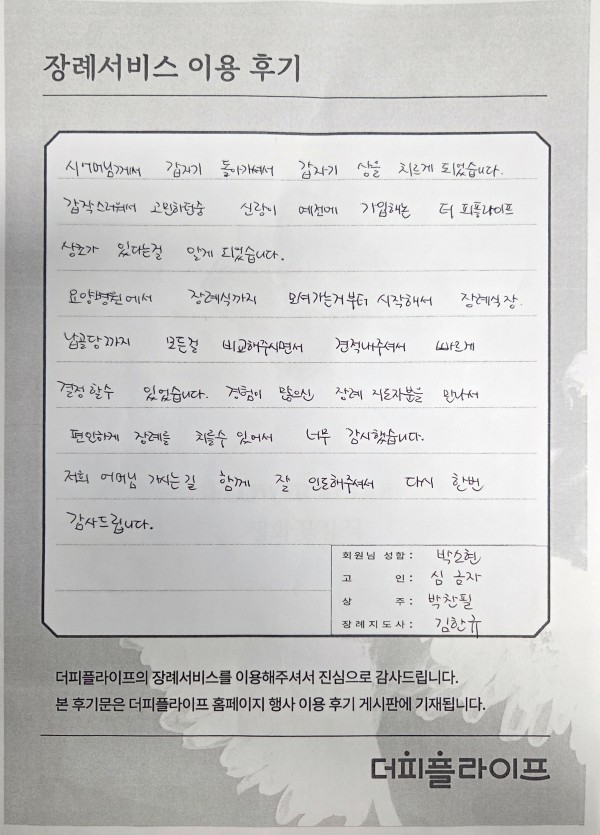 장례서비스 이용 후기
시어머님께서 갑자기 돌아가셔서 갑자기 상을 치르게 되었습니다.
갑작스러워서 고민하던중 신랑이 예전에 가입해논 더 피플라이프
상조가 있다는걸 알게 되었습니다.
요양병원에서 장례식까지 모셔가는거부터 시작해서 장례식장.
납골당까지 모든걸 비교해주시면서 견적내주셔서 빠르게
결정할수 있었습니다. 경험이 많으신 장례 지도자분을 만나서
편안하게 장례를 치를수 있어서 너무 감사했습니다.
저희 어머님 가시는길 함께 잘 인도해주셔서 다시 한번
감사드립니다.
회원님 성함: 박소현
고 인: 심금자
상 주: 박찬필
장례지도사: 김한규
더피플라이프의 장례서비스를 이용해주셔서 진심으로 감사드립니다.
본 후기문은 더피플라이프 홈페이지 행사 이용 후기 게시판에 기재됩니다.
더피플라이프